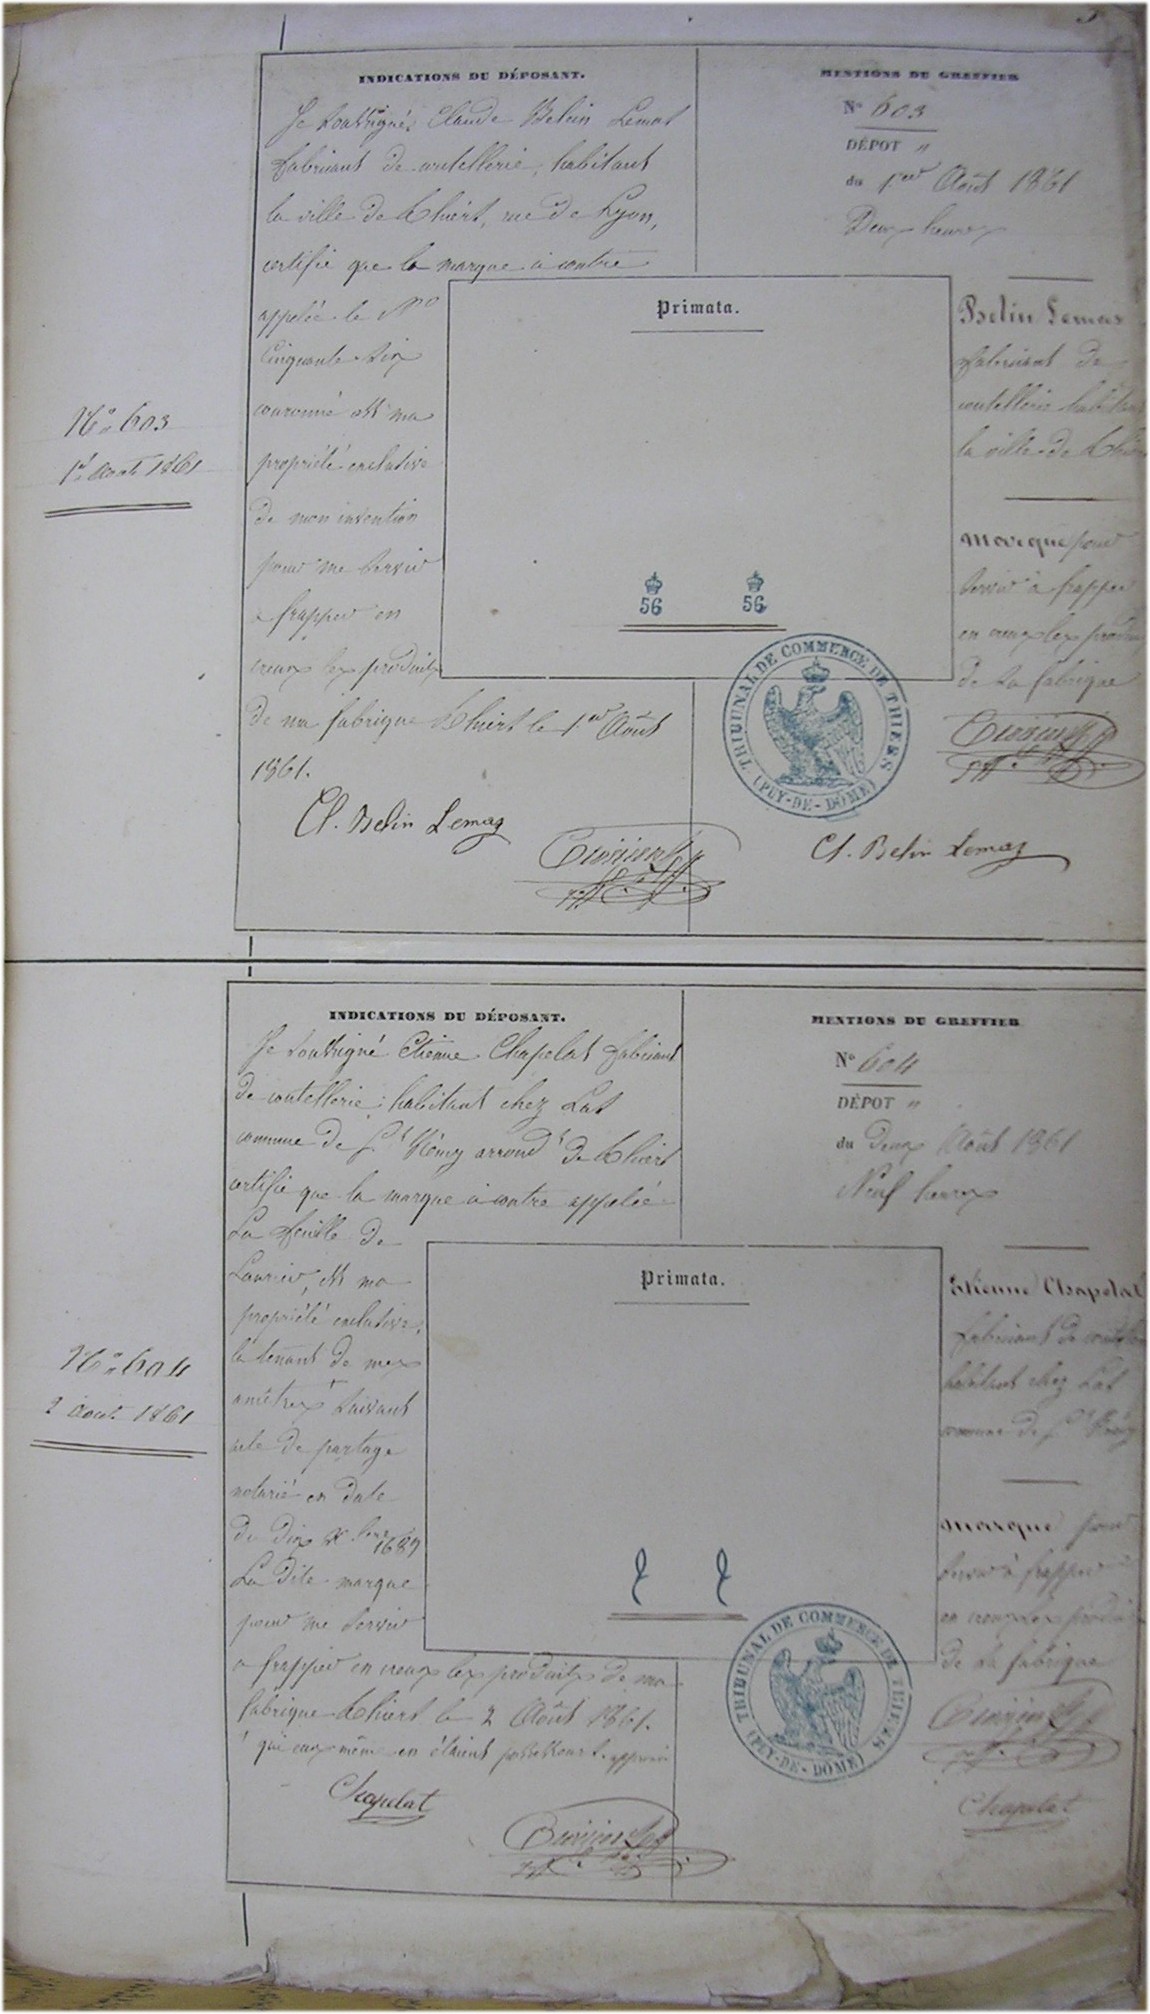 INDICATIONS DU DÉPOSANT.
Je soussigné, Claude Belin Lemas
fabricant de coutellerie, habitant
la ville de Thiers, rue de Lyon,
certifie que la marque ci contre
appelée le Nº
Cinquante six
couronné est ma
propriété exclusive
de mon invention
pour me servir
à frapper en
creux les produits
de ma fabrique Thiers le 1er Août
1861.
Cl. Belin Lemas
MENTIONS DU GREFFIER
Nº 603
DÉPOT "
du 1er Août 1861
Deux heures
Belin Lemas
fabricant de
coutellerie habitant
la ville de Thiers
Marque pour
servir à frapper
en creux les produits
de sa fabrique
Cl. Belin Lemas
Primata.
56 56
TRIBUNAL DE COMMERCE DE THIERS
(PUY-DE-DÔME)
Nº 603
1er Août 1861
INDICATIONS DU DÉPOSANT.
Je soussigné Etienne Chapelat fabricant
de coutellerie, habitant chez Lat
commune de St Rémy arrondt de Thiers
certifie que la marque ci contre appelée
La feuille de
Laurier, est ma
propriété exclusive,
la tenant de mes
ancêtres suivant
acte de partage
notarié en date
du dix Xbre 1689
La dite marque
pour me servir
à frapper en creux les produits de ma
fabrique Thiers le 2 Août 1861.
qui eux même en étaient possesseurs. approuvé
Chapelat
MENTIONS DU GREFFIER
Nº 604
DÉPOT "
du deux Août 1861
Neuf heures
Etienne Chapelat
fabricant de
habitant chez Lat
commune de St Rémy
Marque pour
servir à frapper
en creux les produits
de sa fabrique
Chapelat
Primata.
TRIBUNAL DE COMMERCE DE THIERS
(PUY-DE-DÔME)
Nº 604
2 Août 1861